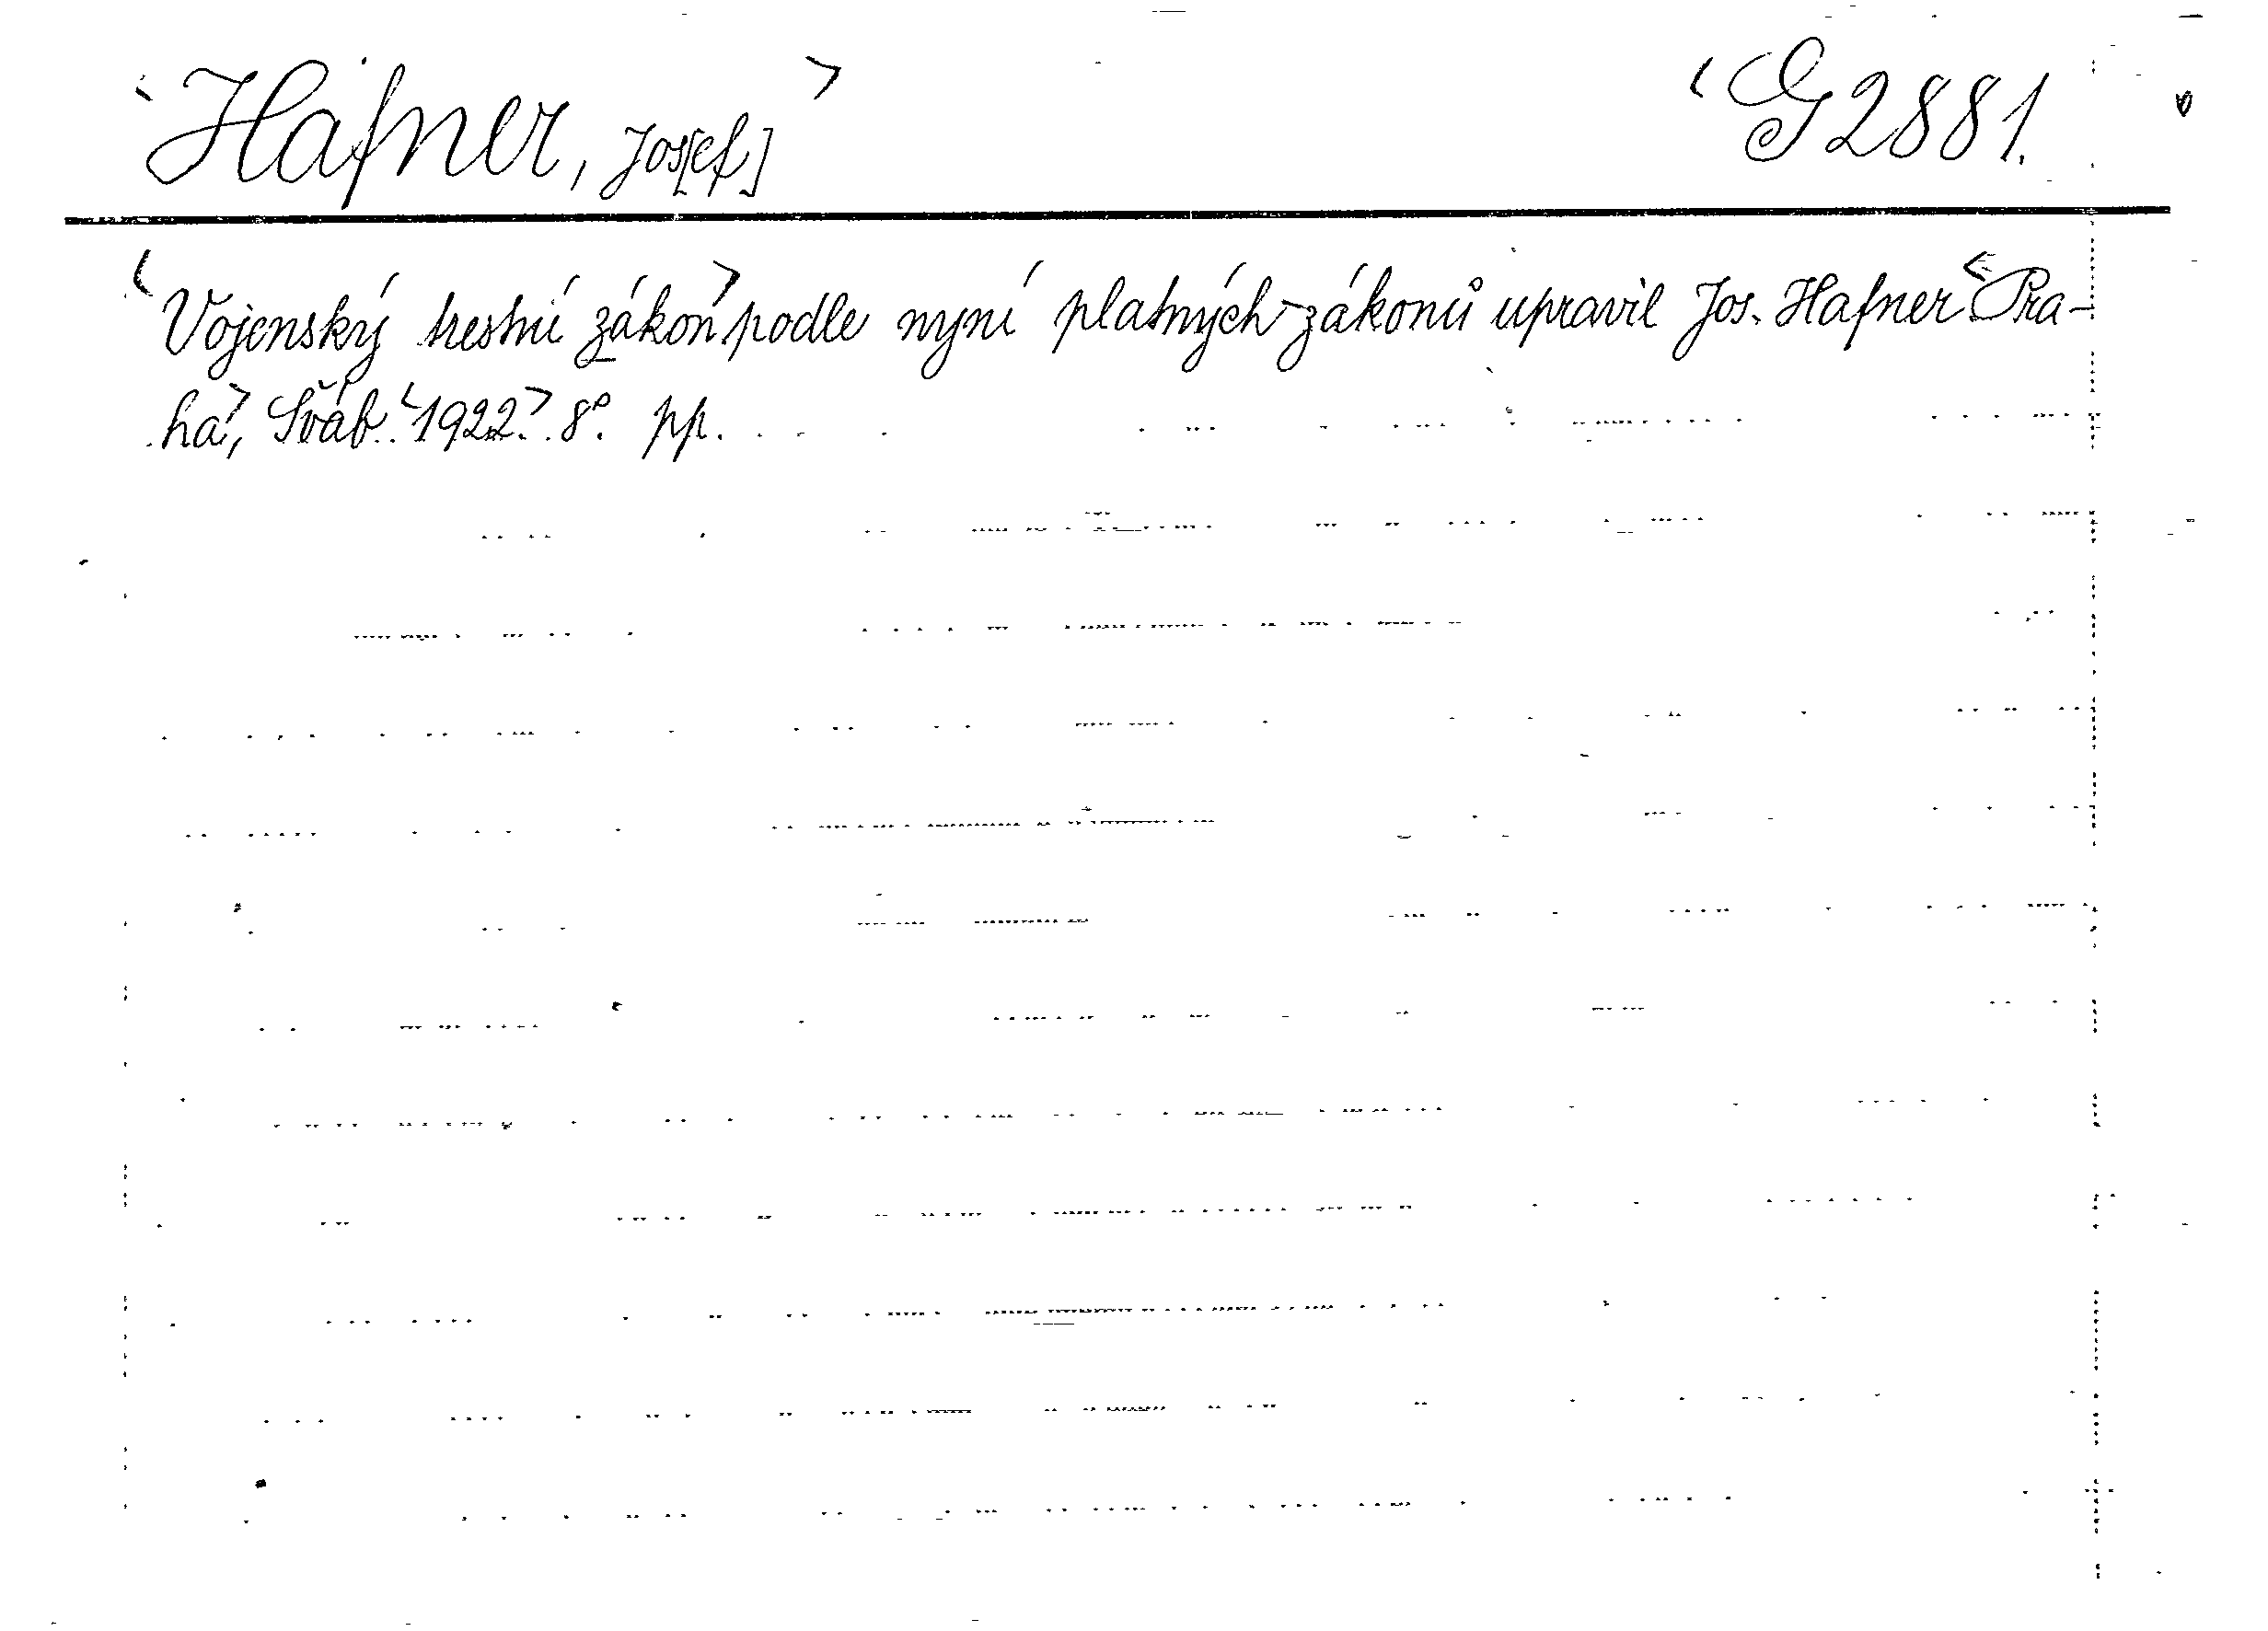 <Hafner, Jos[ef]> <G 2881.
<Vojenský trestní zákon> podle nyní platných zákonů upravil Jos. Hafner. <Pra-
ha>, Šváb. <1922>. 8°. pp.